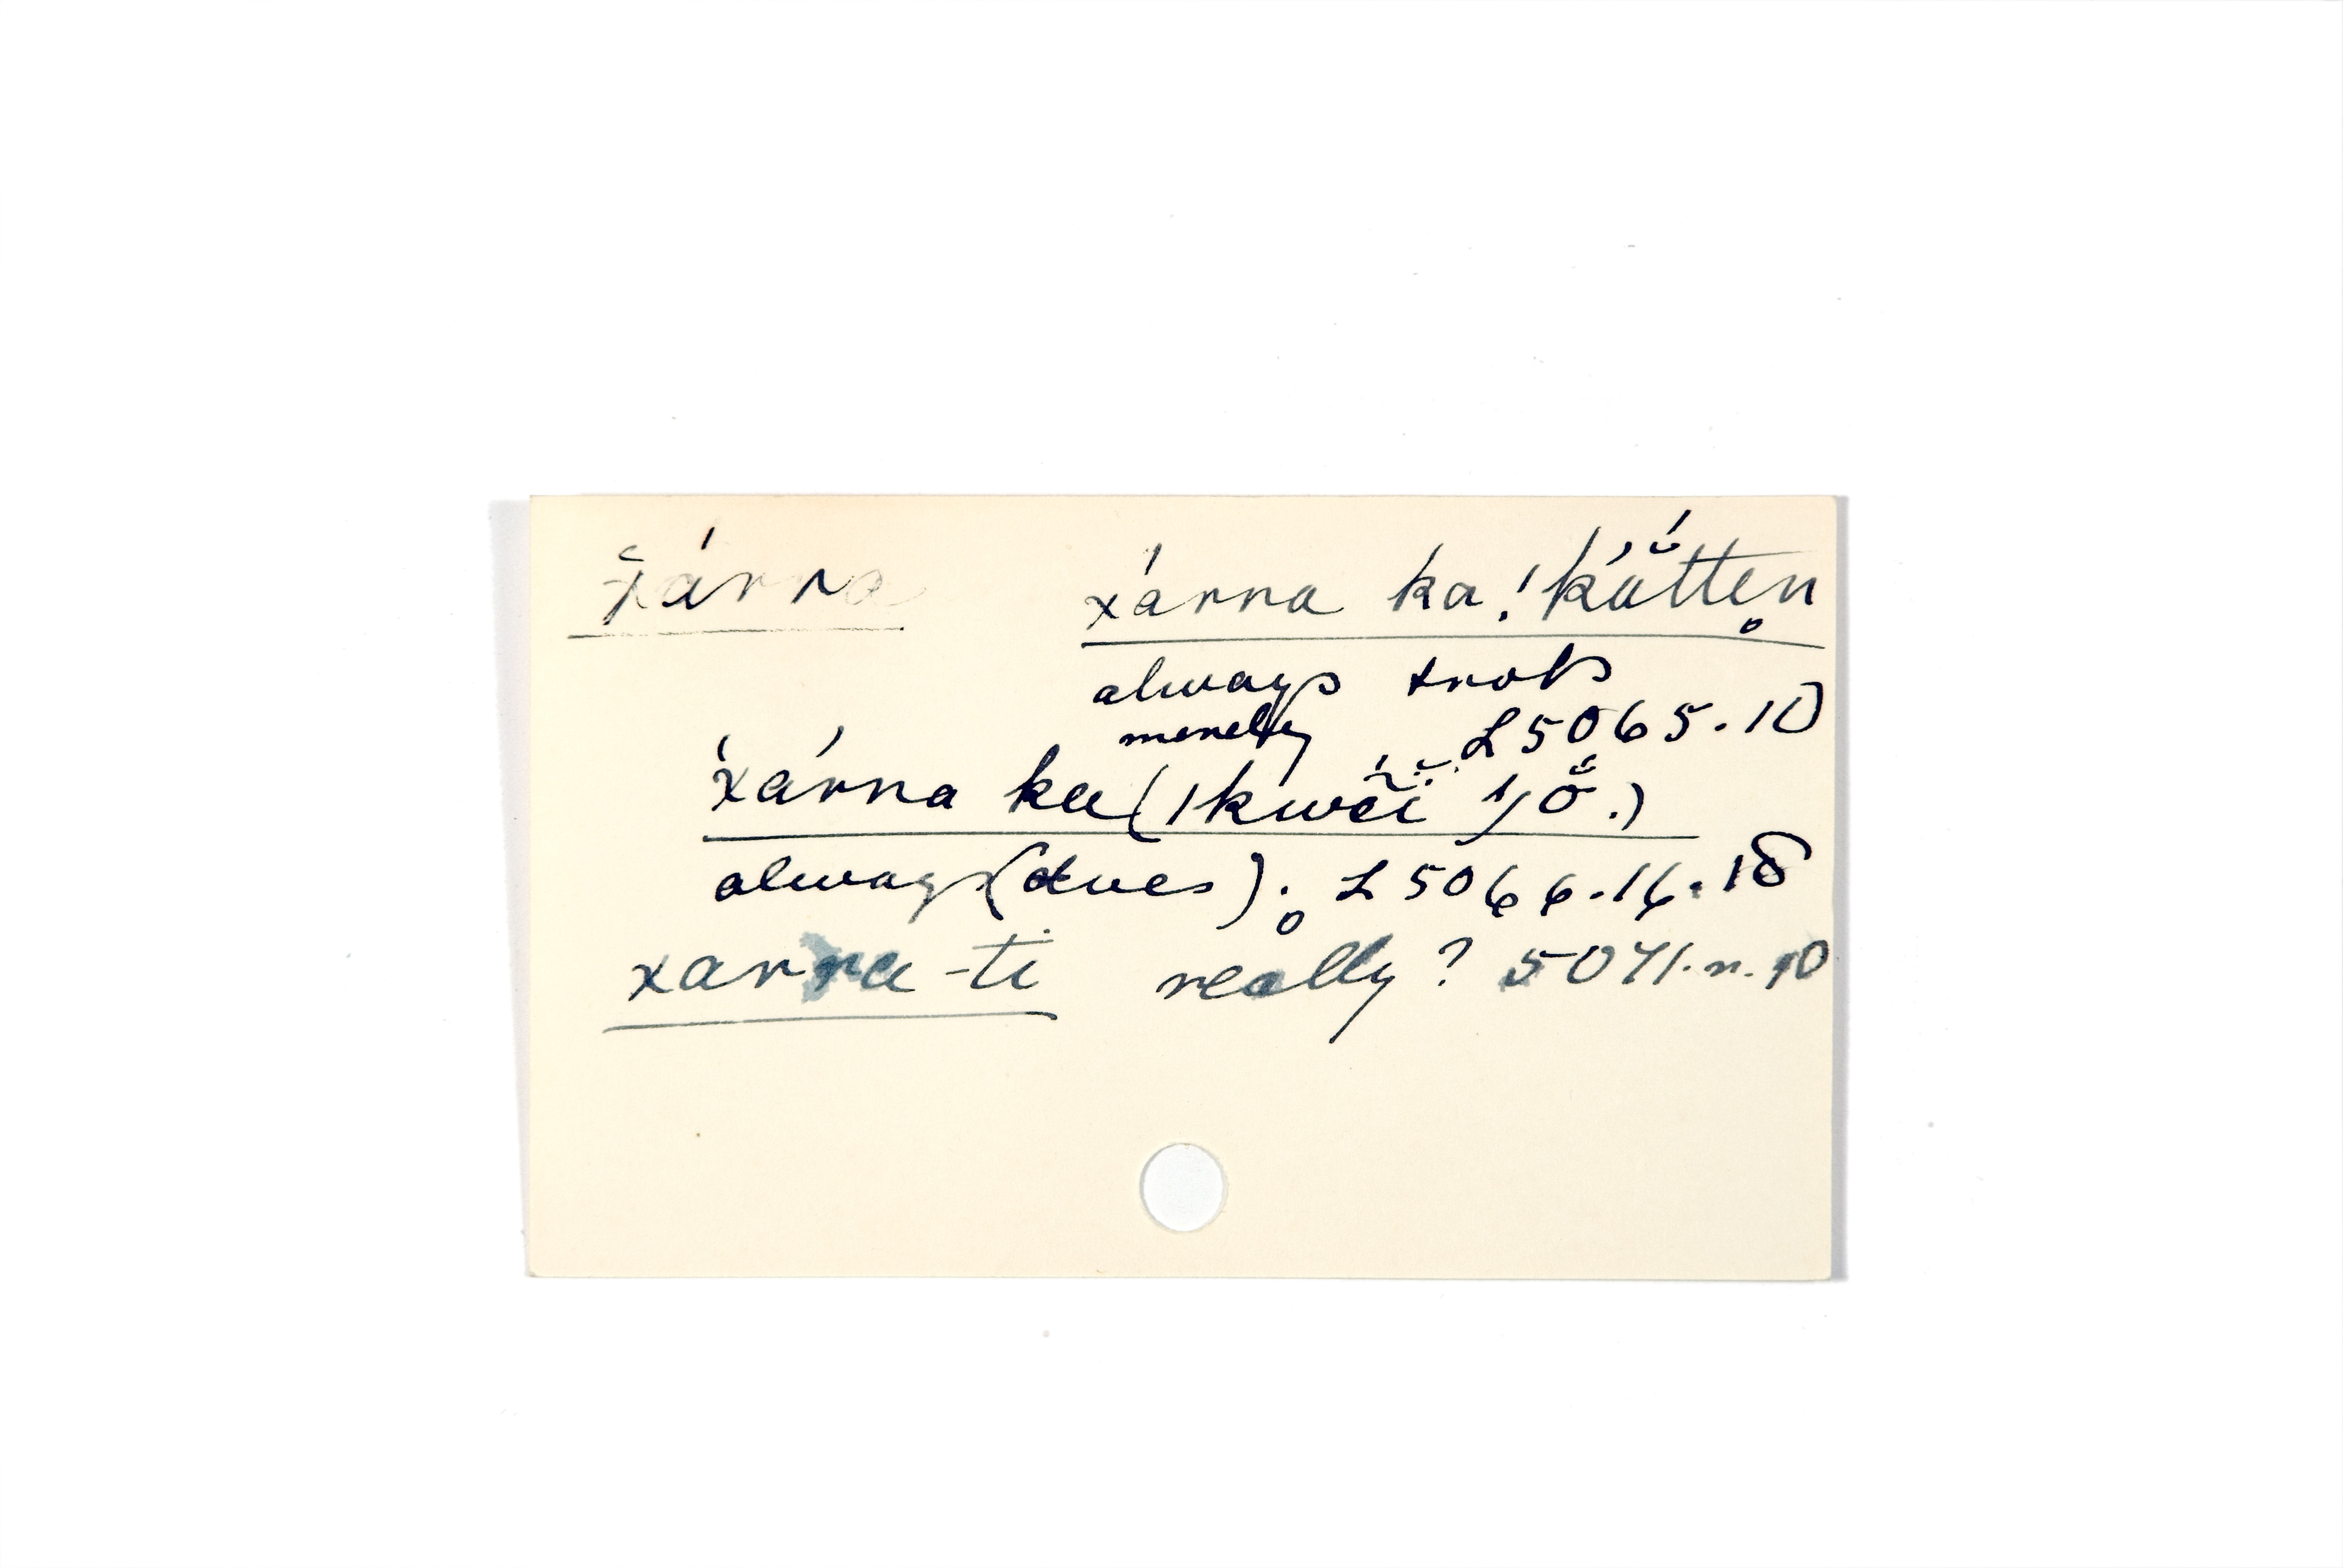 x̆árra x́arra ka ! k̆ắtten̥
always trots
merely L5065.10
x́árra ka (ǀkwẽ̆ĭ ǀő.)
always (dves). L5066.16.18
xarra-ti really? 5071.n.10